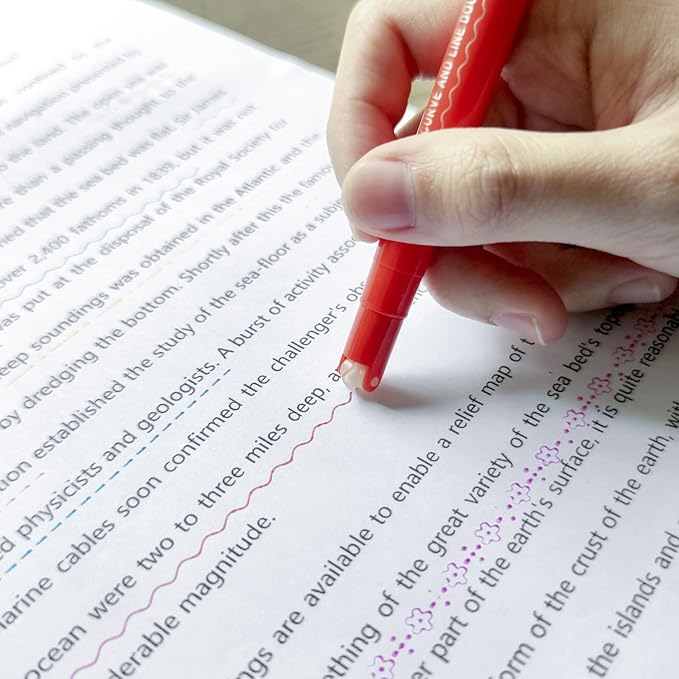 CURVE AND LINE DOU
navigation presented by
than a passing thought to the
ned that the sea bed was flat. Sir James
over 2,400 fathoms in 1839, but it was not
was put at the disposal of the Royal Society for
eep soundings was obtained in the Atlantic and the
by dredging the bottom. Shortly after this the famou
tion established the study of the sea-floor as a subj
d physicists and geologists. A burst of activity assoc
marine cables soon confirmed the challenger's obs
ocean were two to three miles deep, a
derable magnitude.
ngs are available to enable a relief map of t
ething of the great variety of the sea bed's topo
er part of the earth's surface, it is quite reasonabl
orm of the crust of the earth, with
the islands and